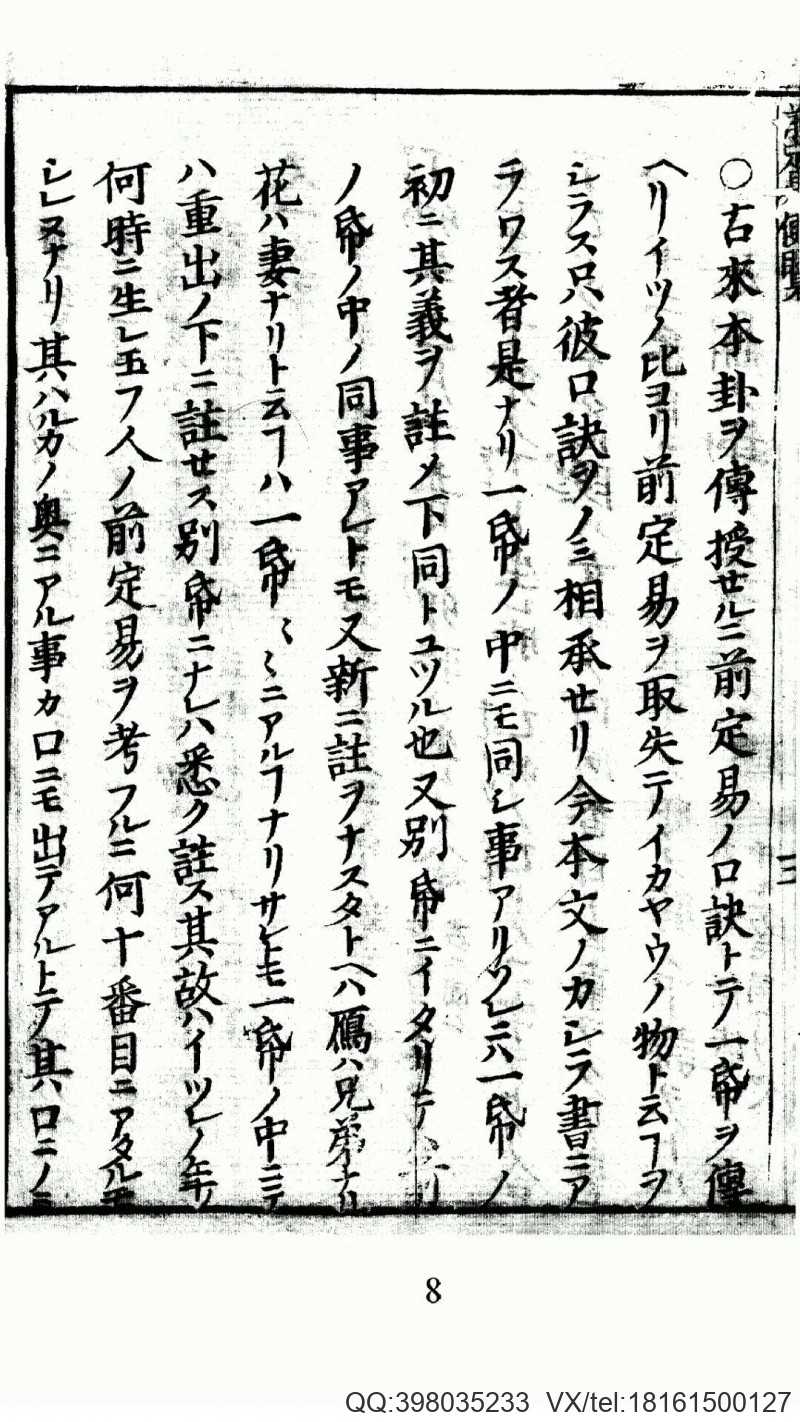 ○古來本卦ヲ傳授セルニ前定易ノ口訣トテノ一帋ヲ傳
ヘリイツノ比ヨリ前定易ヲ取失テノイカヤウノ物ト云フヲ
シラス只ハ彼口訣ヲノミ相承セリ今本文ノカシラ書ニア
ラワス者是ナリ一帋ノ中ニモ同シ事アリソレニハ一帋ノ
初ニ其義ヲ註メ下同トユツル也又別帋ニイタリテハ
ノ帋ノ中ノ同事アレトモ又新ニ註ヲナスタトヘハ鴈ハ兄弟ナリ
花ハ妻ナリト云フハ一帋〻〻ニアルフナリサレモ一帋ノ中ニテ
ハ重出ノ下ニ註セス別帋ニナレハ悉ク註ス其故ハイツレノ年ノ
何時ニ生レ玉フ人ノ前定易ヲ考フルニ何十番目ニアタルモ
シレヌナリ其ハルカノ奥ニアル事カ口ニモ出テアルトテ其口ニノミ
三
8
QQ:398035233 VX/tel:18161500127